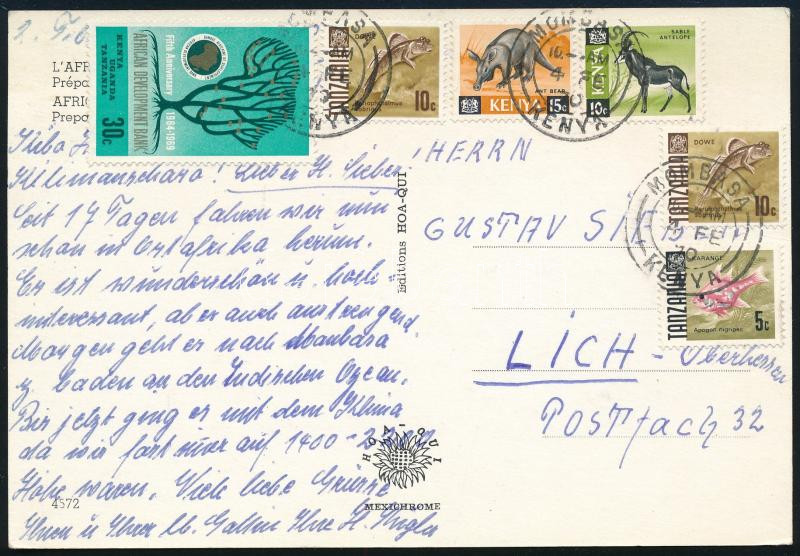 KENYA UGANDA TANZANIA
AFRICAN DEVELOPMENT BANK
Fifth Anniversary 1964-1969
30c
DOWE
TANZANIA
10c
ANT BEAR
KENYA
15c
SABLE ANTELOPE
KENYA
10c
MOMBASA
KENYA
MOMBASA
4 FE
KENYA
L'AFR
Prépa
AFRIC
Prepa
Kibo
Kilimanscharo! Lieber H. Sieber!
Seit 17 Tagen fahren wir nun
schon in Ostafrika herum.
Es ist wunderschön u. hoch-
interessant, aber auch anstrengend.
Morgen geht es nach Mombasa
z. baden an den Indischen Ozean.
Bis jetzt ging es mit dem Klima
da wir fast nur auf 1400 -
Höhe waren. Viele liebe Grüsse
Ihnen u. Ihrer lb. Gattin Ihre H.
4572
Editions HOA-QUI
HOA-QUI
MEXICHROME
HERRN
GUSTAV
LICH - Oberhessen
POSTfach 32
DOWE
TANZANIA
10c
MOMBASA
FE
70
KENYA
KARANGE
TANZANIA
Apogon nigripes
5c